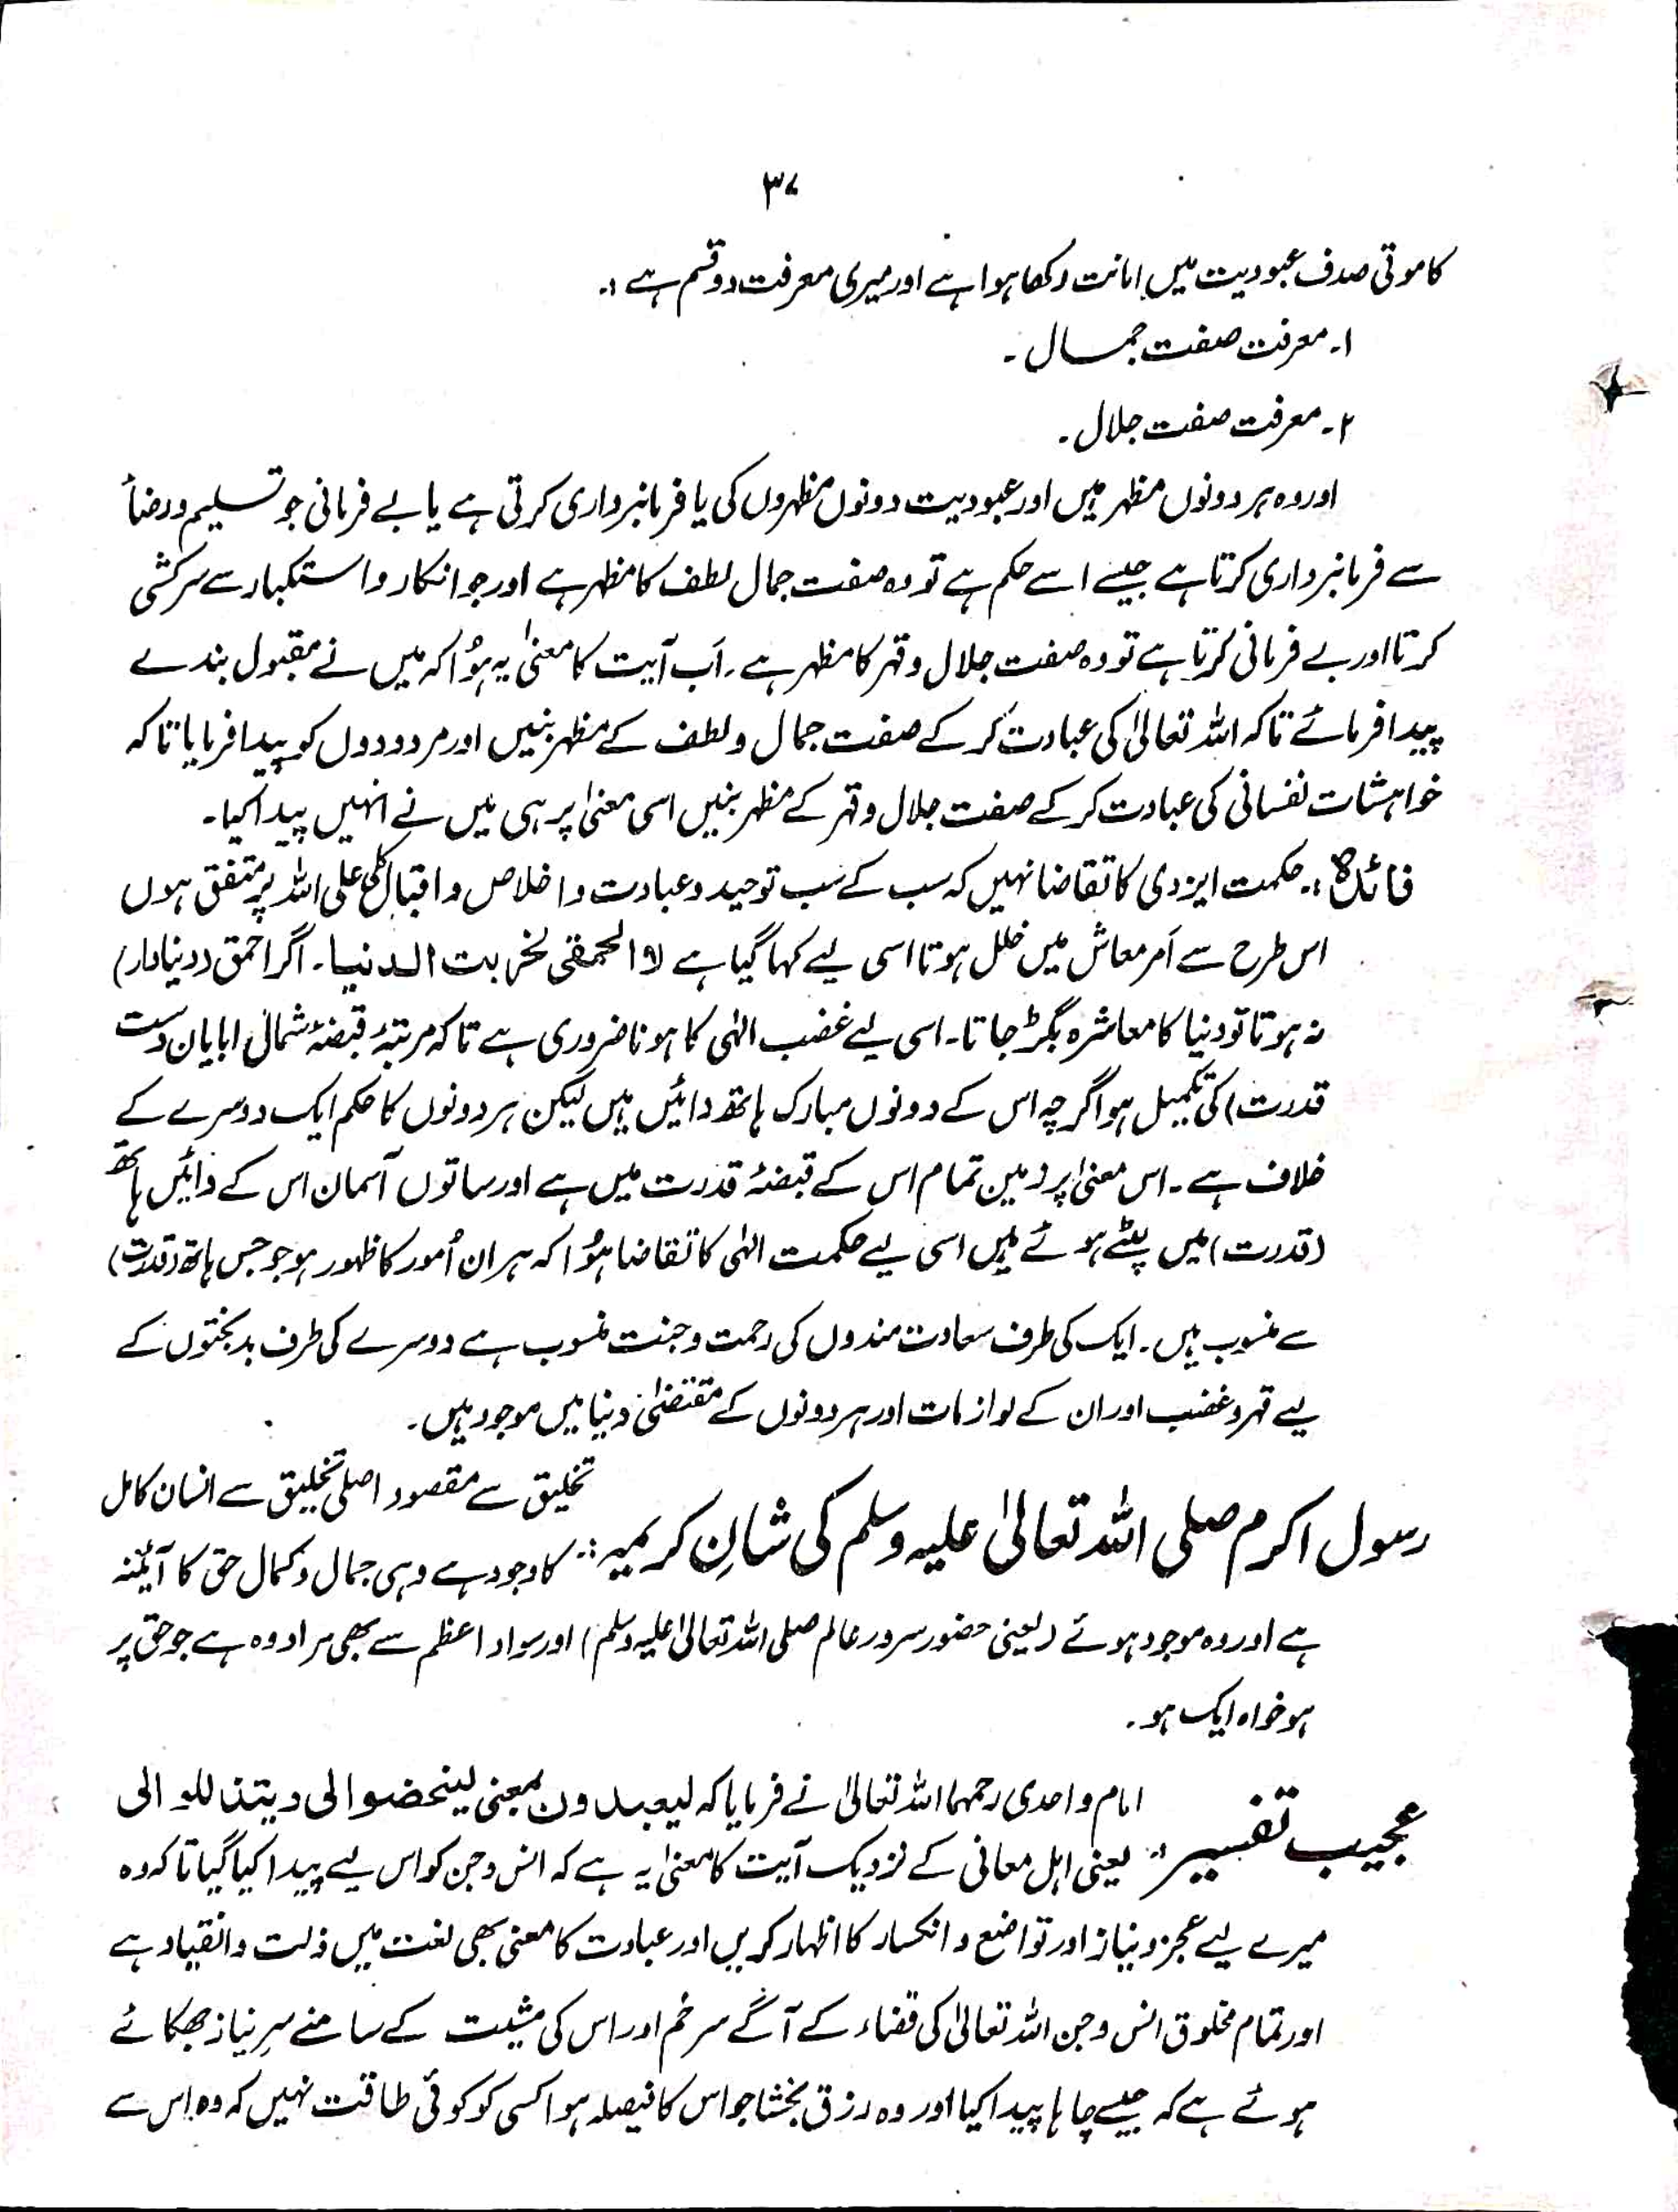 ۳۷
کا موتی صدف عبودیت میں امانت رکھا ہوا ہے اور میری معرفت دو قسم ہے :۔
۱۔ معرفت صفت جمال ۔
۲۔ معرفت صفت جلال ۔
اور وہ ہر دونوں مظہر ہیں اور عبودیت دونوں مظہروں کی یا فرمانبرداری کرتی ہے یا بے فرمانی جو تسلیم و رضأ
سے فرمانبرداری کرتا ہے جیسے اسے حکم ہے تو وہ صفت جمال لطف کا مظہر ہے اور جو انکار و استکبار سے سرکشی
کرتا اور بے فرمانی کرتا ہے تو وہ صفت جلال و قہر کا مظہر ہے ۔ اَب آیت کا معنیٰ یہ ہُوا کہ میں نے مقبول بندے
پیدا فرمائے تاکہ اللہ تعالیٰ کی عبادت کر کے صفت جمال و لطف کے مظہر بنیں اور مردودوں کو پیدا فرمایا تاکہ
خواہشات نفسانی کی عبادت کر کے صفت جلال و قہر کے مظہر بنیں اسی معنیٰ پر ہی میں نے انہیں پیدا کیا ۔
فائدہ :۔ حکمت ایزدی کا تقاضا نہیں کہ سب کے سب توحید و عبادت و اخلاص و اقبال کلی علی اللہ پر متفق ہوں
اس طرح سے اَمر معاش میں خلل ہوتا اسی لیے کہا گیا ہے لو لا الحمقی لخربت الدنیا ۔ اگر احمق (دنیادار)
نہ ہوتا تو دنیا کا معاشرہ بگڑ جاتا ۔ اسی لیے غضب الہٰی کا ہونا ضروری ہے تاکہ مرتبۂ قبضۂ شمال (بایاں دست
قدرت) کی تکمیل ہو اگرچہ اس کے دونوں مبارک ہاتھ دائیں ہیں لیکن ہر دونوں کا حکم ایک دوسرے کے
خلاف ہے ۔ اس معنیٰ پر زمین تمام اس کے قبضۂ قدرت میں ہے اور ساتوں آسمان اس کے دائیں ہاتھ
(قدرت) میں لپٹے ہوئے ہیں اسی لیے حکمت الہٰی کا تقاضا ہُوا کہ ہر ان اُمور کا ظہور ہو جو جس ہاتھ (قدرت)
سے منسوب ہیں ۔ ایک کی طرف سعادت مندوں کی رحمت و جنت منسوب ہے دوسرے کی طرف بدبختوں کے
لیے قہر و غضب اور ان کے لوازمات اور ہر دونوں کے مقتضیٰ دنیا میں موجود ہیں ۔
رسول اکرم صلی اللہ تعالیٰ علیہ وسلم کی شانِ کریمیہ :۔ تخلیق سے مقصود اصلی تخلیق سے انسان کامل
کا وجود ہے وہی جمال و کمال حق کا آئینہ
ہے اور وہ موجود ہوئے (یعنی حضور سرور عالم صلی اللہ تعالیٰ علیہ وسلم) اور سواد اعظم سے بھی مراد وہ ہے جو حق پر
ہو خواہ ایک ہو ۔
عجیب تفسیر :۔ امام واحدی رحمہما اللہ تعالیٰ نے فرمایا کہ لیعبدون بمعنی لیخضعوا لی ویتذللوا لی
یعنی اہل معانی کے نزدیک آیت کا معنیٰ یہ ہے کہ انس و جن کو اس لیے پیدا کیا گیا تاکہ وہ
میرے لیے عجز و نیاز اور تواضع و انکسار کا اظہار کریں اور عبادت کا معنی بھی لغت میں ذلت و انقیاد ہے
اور تمام مخلوق انس و جن اللہ تعالیٰ کی قضاء کے آگے سر خم اور اس کی مشیت کے سامنے سرِ نیاز جھکائے
ہوئے ہے کہ جیسے چاہا پیدا کیا اور وہ رزق بخشا جو اس کا فیصلہ ہوا کسی کو کوئی طاقت نہیں کہ وہ اِس سے